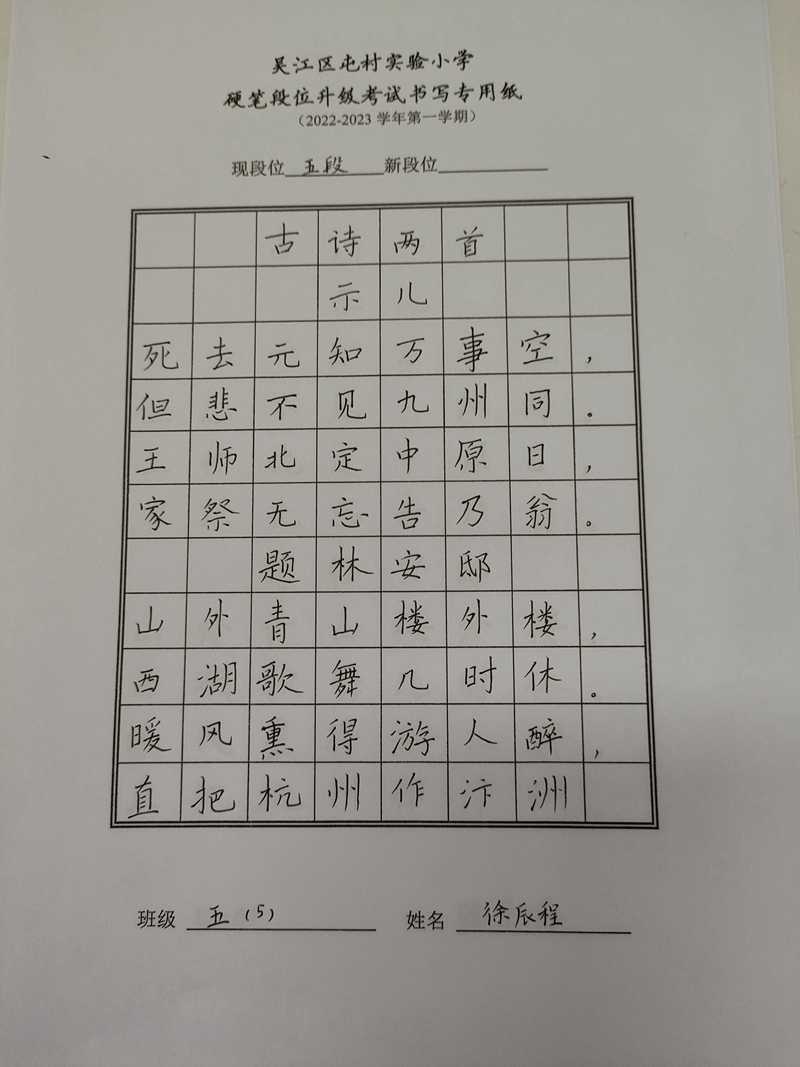 吴江区屯村实验小学
硬笔段位升级考试书写专用纸
（2022-2023 学年第一学期）
现段位 五段 新段位
古诗两首
示儿
死去元知万事空，
但悲不见九州同。
王师北定中原日，
家祭无忘告乃翁。
题林安邸
山外青山楼外楼，
西湖歌舞几时休。
暖风熏得游人醉，
直把杭州作汴洲
班级 五（5） 姓名 徐辰程